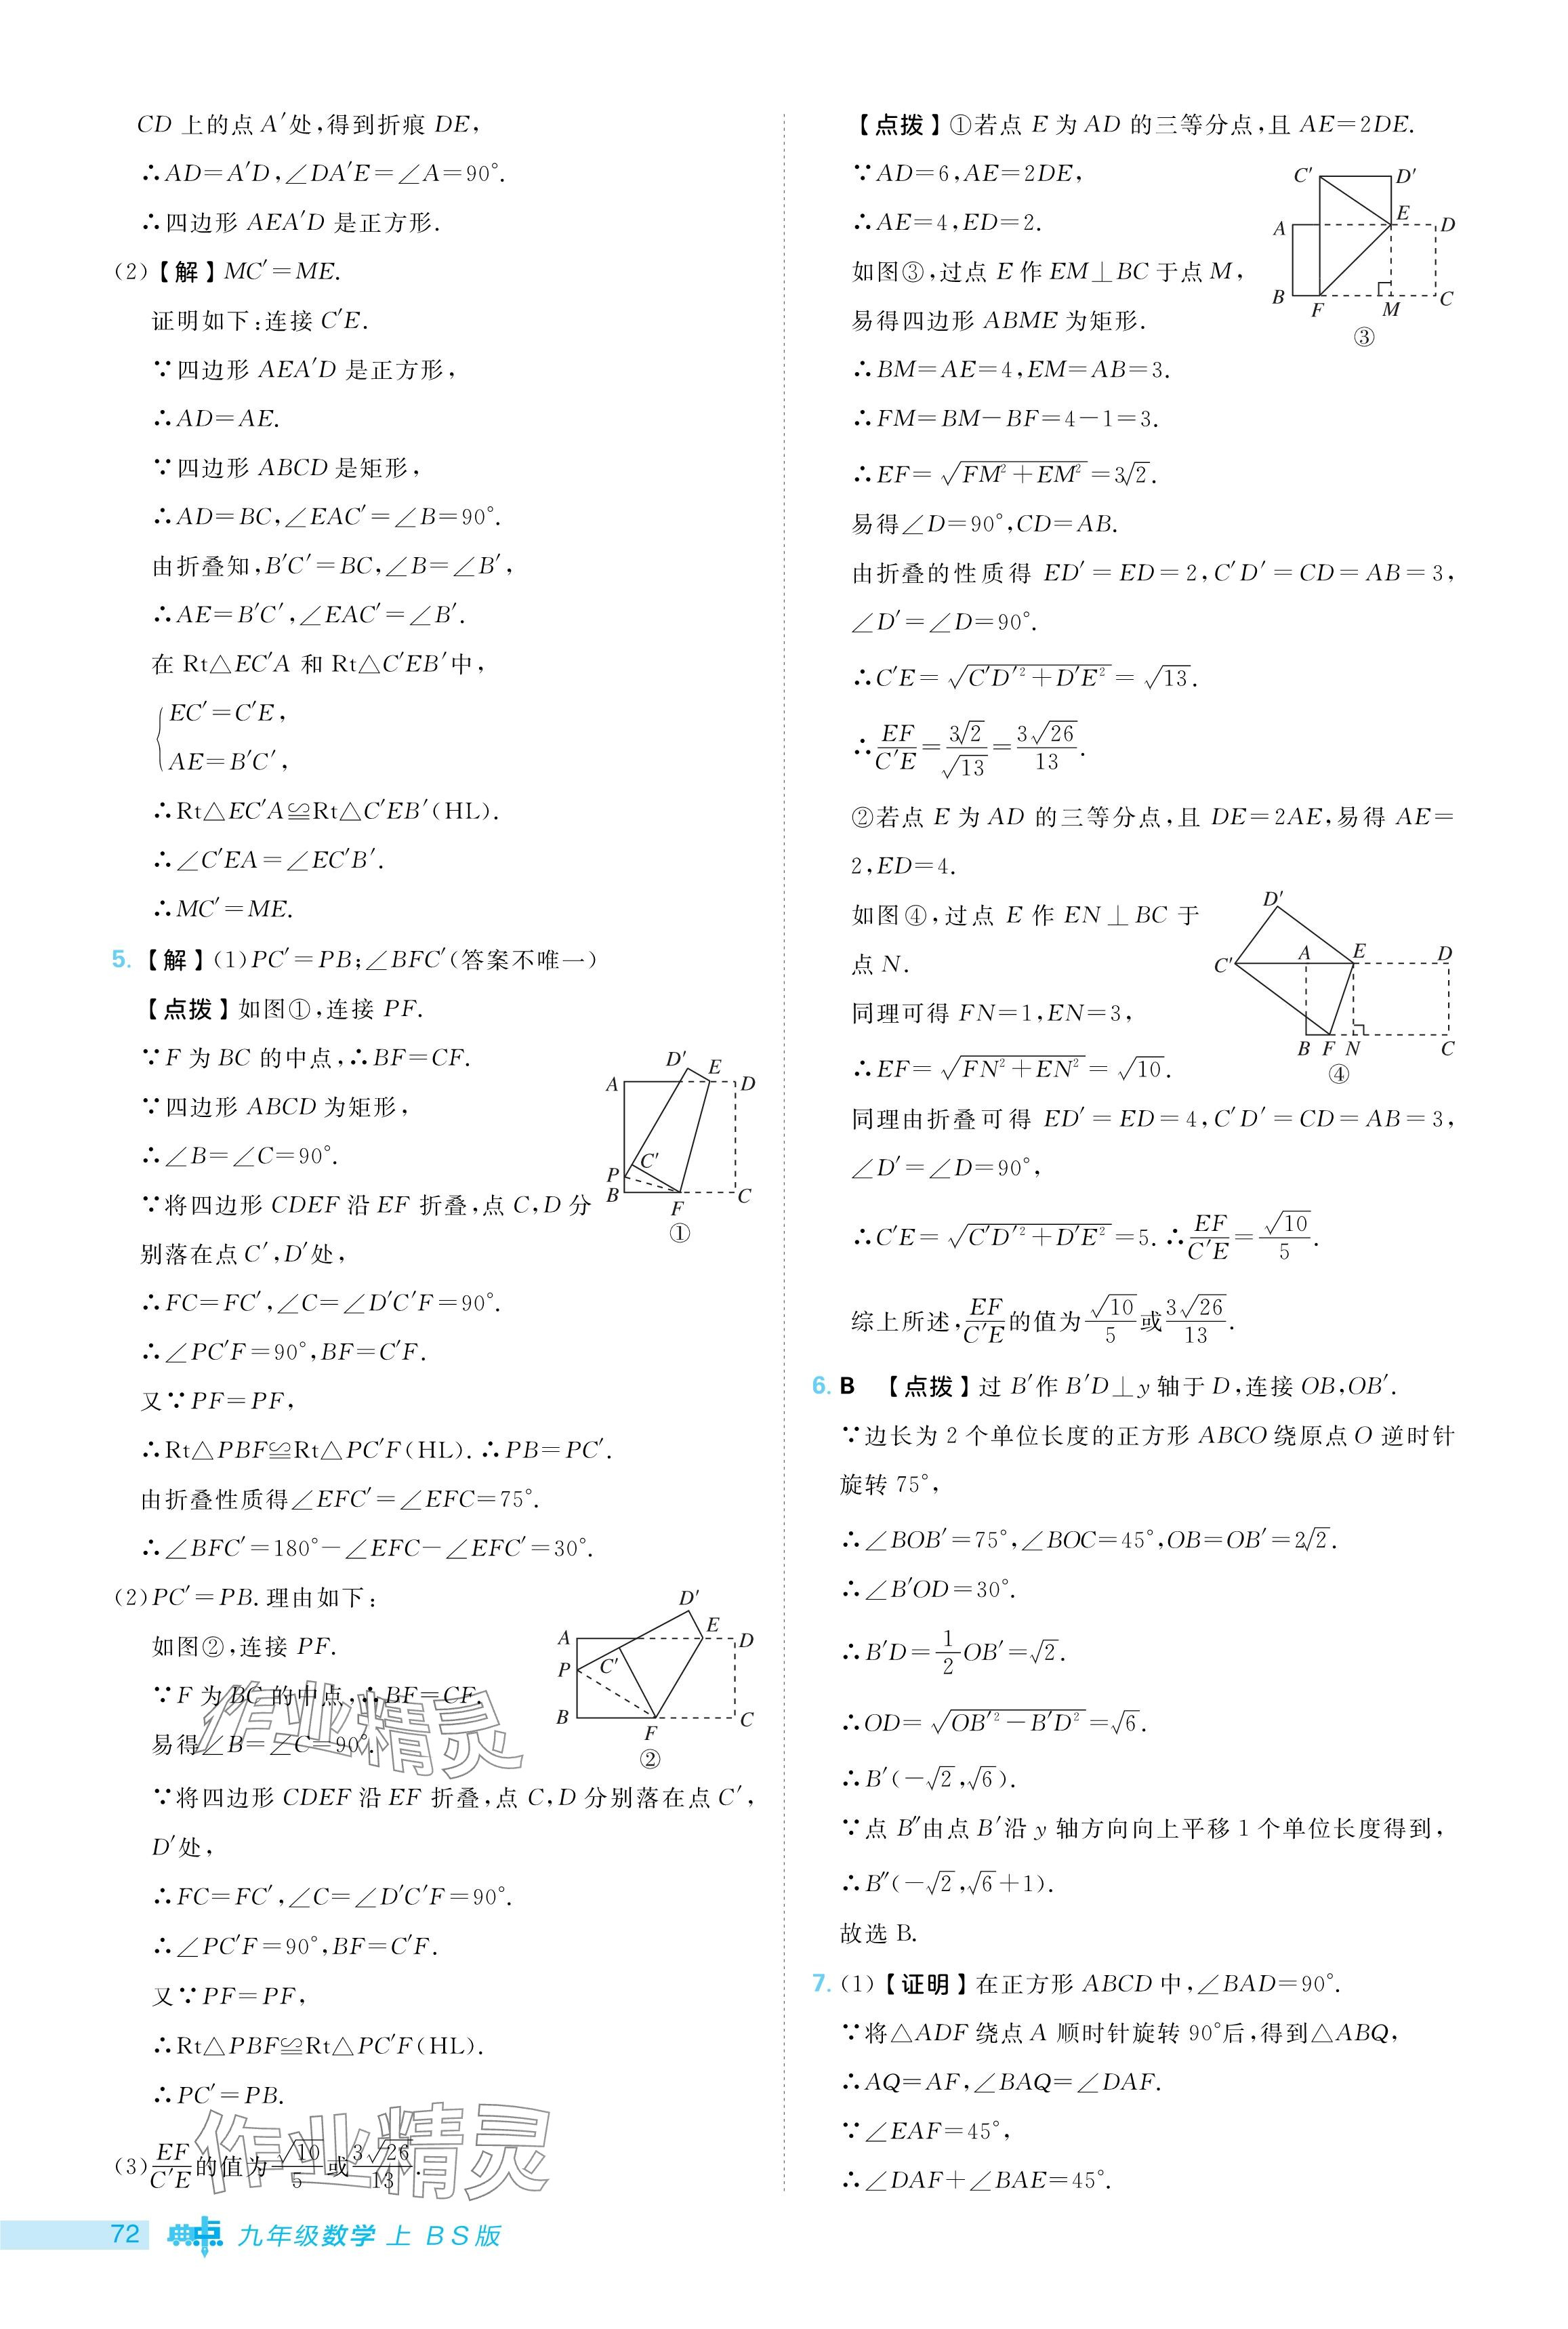 CD 上的点 A′处,得到折痕 DE,
∴AD=A′D,∠DA′E=∠A=90°.
∴四边形 AEA′D 是正方形.
(2)【解】MC′=ME.
证明如下:连接 C′E.
∵四边形 AEA′D 是正方形,
∴AD=AE.
∵四边形 ABCD 是矩形,
∴AD=BC,∠EAC′=∠B=90°.
由折叠知,B′C′=BC,∠B=∠B′,
∴AE=B′C′,∠EAC′=∠B′.
在 Rt△EC′A 和 Rt△C′EB′中,
{EC′=C′E,
AE=B′C′,
∴Rt△EC′A≌Rt△C′EB′(HL).
∴∠C′EA=∠EC′B′.
∴MC′=ME.
5.【解】(1)PC′=PB;∠BFC′(答案不唯一)
【点拨】如图①,连接 PF.
∵F 为 BC 的中点,∴BF=CF.
∵四边形 ABCD 为矩形,
∴∠B=∠C=90°.
∵将四边形 CDEF 沿 EF 折叠,点 C,D 分
别落在点 C′,D′处,
∴FC=FC′,∠C=∠D′C′F=90°.
∴∠PC′F=90°,BF=C′F.
又∵PF=PF,
∴Rt△PBF≌Rt△PC′F(HL).∴PB=PC′.
由折叠性质得∠EFC′=∠EFC=75°.
∴∠BFC′=180°-∠EFC-∠EFC′=30°.
D′
E
A
D
C′
P
B
F
C
①
(2)PC′=PB.理由如下:
如图②,连接 PF.
∵F 为 BC 的中点,∴BF=CF.
易得∠B=∠C=90°.
∵将四边形 CDEF 沿 EF 折叠,点 C,D 分别落在点 C′,
D′处,
∴FC=FC′,∠C=∠D′C′F=90°.
∴∠PC′F=90°,BF=C′F.
又∵PF=PF,
∴Rt△PBF≌Rt△PC′F(HL).
∴PC′=PB.
(3)EF/C′E的值为√10/5或3√26/13.
D′
E
A
D
P
C′
B
F
C
②
作业精灵
作业精灵
72 典中点 九年级数学 上 BS版
【点拨】①若点 E 为 AD 的三等分点,且 AE=2DE.
∵AD=6,AE=2DE,
∴AE=4,ED=2.
如图③,过点 E 作 EM⊥BC 于点 M,
易得四边形 ABME 为矩形.
∴BM=AE=4,EM=AB=3.
∴FM=BM-BF=4-1=3.
∴EF=√(FM²+EM²)=3√2.
易得∠D=90°,CD=AB.
由折叠的性质得 ED′=ED=2,C′D′=CD=AB=3,
∠D′=∠D=90°.
∴C′E=√(C′D′²+D′E²)=√13.
∴EF/C′E=3√2/√13=3√26/13.
C′
D′
E
A
D
B
F
M
C
③
②若点 E 为 AD 的三等分点,且 DE=2AE,易得 AE=
2,ED=4.
如图④,过点 E 作 EN⊥BC 于
点 N.
同理可得 FN=1,EN=3,
∴EF=√(FN²+EN²)=√10.
同理由折叠可得 ED′=ED=4,C′D′=CD=AB=3,
∠D′=∠D=90°,
∴C′E=√(C′D′²+D′E²)=5.∴EF/C′E=√10/5.
综上所述,EF/C′E的值为√10/5或3√26/13.
D′
C′
A
E
D
B
F
N
C
④
6. B 【点拨】过 B′作 B′D⊥y 轴于 D,连接 OB,OB′.
∵边长为 2 个单位长度的正方形 ABCO 绕原点 O 逆时针
旋转 75°,
∴∠BOB′=75°,∠BOC=45°,OB=OB′=2√2.
∴∠B′OD=30°.
∴B′D=1/2OB′=√2.
∴OD=√(OB′²-B′D²)=√6.
∴B′(-√2,√6).
∵点 B″由点 B′沿 y 轴方向向上平移 1 个单位长度得到,
∴B″(-√2,√6+1).
故选 B.
7.(1)【证明】在正方形 ABCD 中,∠BAD=90°.
∵将△ADF 绕点 A 顺时针旋转 90°后,得到△ABQ,
∴AQ=AF,∠BAQ=∠DAF.
∵∠EAF=45°,
∴∠DAF+∠BAE=45°.